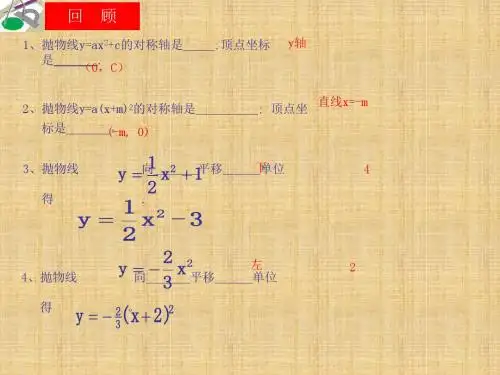 回 顾
1、抛物线y=ax²+c的对称轴是_____.顶点坐标 y轴
是_______. (0, C)
2、抛物线y=a(x+m)²的对称轴是_________. 顶点坐 直线x=-m
标是_______. (-m, 0)
3、抛物线 y = 1/2 x² + 1 向______平移______单位 下 4
得 y = 1/2 x² - 3
4、抛物线 y = - 2/3 x² 向______平移______单位 左 2
得 y = - 2/3 (x+2)²